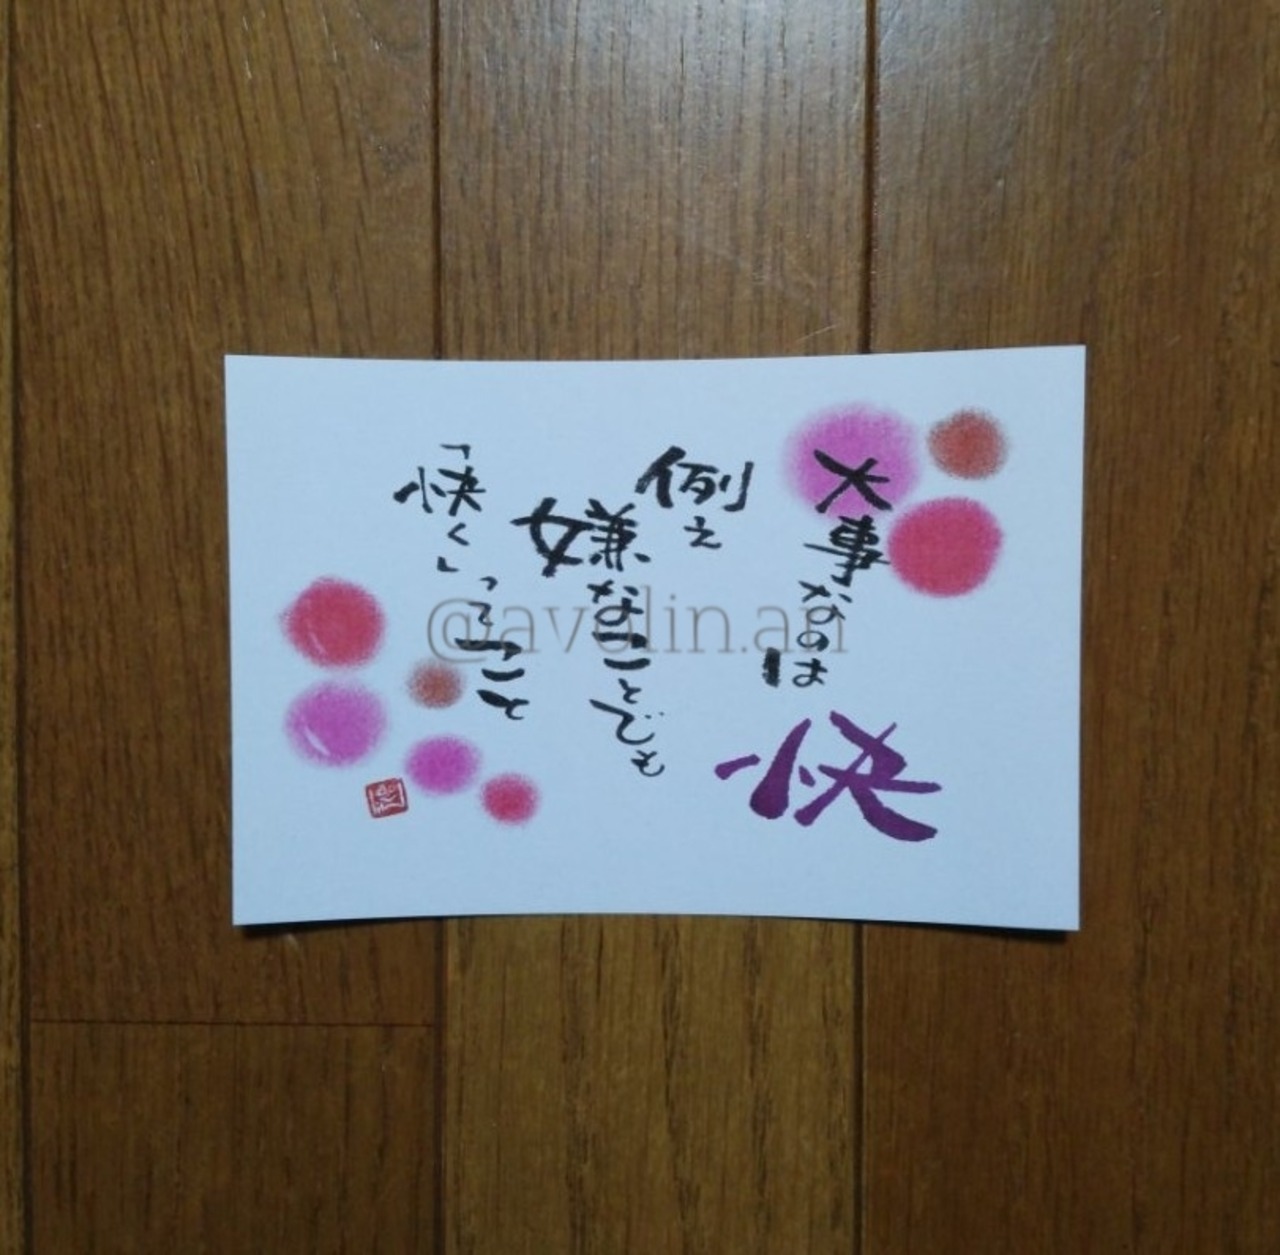 大事なのは
快
例え
嫌なことでも
「快く」
ってこと
@avelin.an